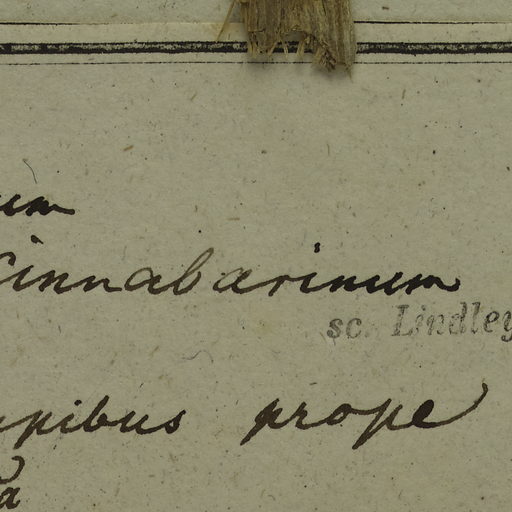 um
Cinnabarinum
sc. Lindley
upibus prope
a